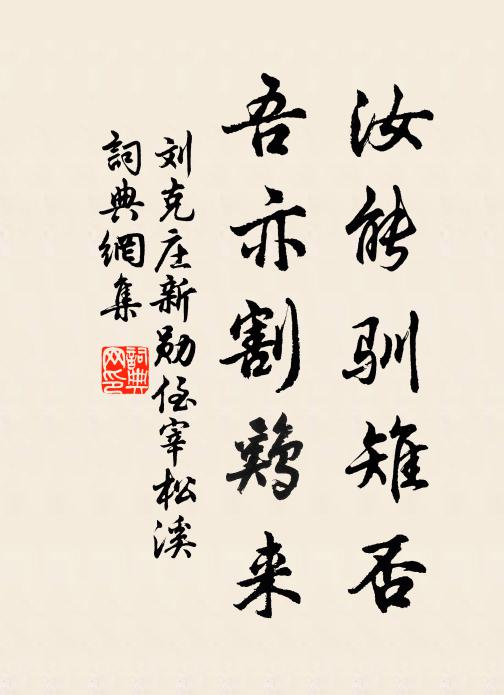 汝能驯雉否
吾亦割鷄来
刘克庄新勋侄宰松溪
詞典網集
詞典网印